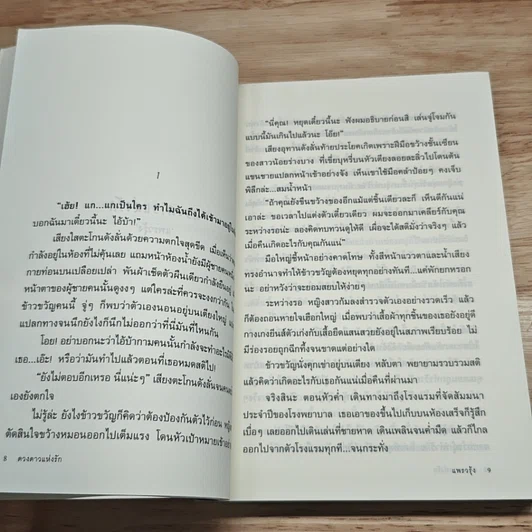 1
"เฮ้ย! แก...แกเป็นใคร ทำไมฉันถึงได้เข้ามาอยู่ใน
บอกฉันมาเดี๋ยวนี้นะ ไอ้บ้า!"
เสียงใสตะโกนดังลั่นด้วยความตกใจสุดขีด เมื่อ
กำลังอยู่ในห้องที่ไม่คุ้นเลย แถมหน้าห้องน้ำยังมีผู้ชาย
กายท่อนบนเปลือยเปล่า พันผ้าเช็ดตัวผืนเดียวกำลังยืน
หน้าตาของผู้ชายคนนั้นดูงงๆ แต่ใครล่ะที่ควรจะงงกว่ากัน
ข้าวขวัญคนนี้ จู่ๆ ก็พบว่าตัวเองนอนอยู่บนเตียงใหญ่
แปลกทางจนนึกยังไงก็นึกไม่ออกว่าที่นี่มันที่ไหนกัน
โอย! อย่าบอกนะว่าไอ้บ้ากามคนนั้นกำลังจะทำอะไร
เธอ...เอ๊ะ! หรือว่ามันทำไปแล้วตอนที่เธอหมดสติไป!
"ยังไม่ตอบอีกเหรอ นี่แน่ะๆ" เสียงตะโกนดังลั่นจน
เองยังตกใจ
ไม่รู้ล่ะ ยังไงข้าวขวัญก็คิดว่าต้องป้องกันตัวไว้ก่อน
ตัดสินใจขว้างหมอนออกไปเต็มแรง โดนหัวเป้าหมายเข้าอย่าง
8 ดวงดาวแห่งรัก
"นี่คุณ! หยุดเดี๋ยวนี้นะ ฟังผมอธิบายก่อนสิ เล่นจู่โจมกัน
แบบนี้มันเกินไปแล้วนะ โอ๊ย!"
เสียงอุทานดังลั่นท้ายประโยคเกิดเพราะฝีมือขว้างชั้นเซียน
ของสาวน้อยร่างบาง ที่เขี่ยบุหรี่บนหัวเตียงลอยละลิ่วไปโดนต้น
แขนชายแปลกหน้าเข้าอย่างจัง เห็นเขาใช้มือคลำป้อยๆ คงเจ็บ
พิลึกล่ะ...สมน้ำหน้า
"ถ้าคุณยังขืนขว้างของอีกแม้แต่ชิ้นเดียวล่ะก็ เห็นดีกันแน่
เอาล่ะ ขอเวลาไปแต่งตัวเดี๋ยวเดียว ผมจะออกมาเคลียร์กับคุณ
ระหว่างรอน่ะ ลองคิดทบทวนดูให้ดี เผื่อจะได้สติมั่งว่าจริงๆ แล้ว
เมื่อคืนเกิดอะไรกับคุณกันแน่"
มือใหญ่ชี้หน้าอย่างคาดโทษ ทั้งสีหน้าแววตาและน้ำเสียง
ทรงอำนาจทำให้ข้าวขวัญต้องหยุดทุกอย่างทันที...แค่พักยกหรอก
น่ะ อย่าหวังว่าจะยอมสยบให้ง่ายๆ
ระหว่างรอ หญิงสาวก้มลงสำรวจตัวเองอย่างรวดเร็ว แล้ว
ก็ต้องถอนหายใจเฮือกใหญ่ เมื่อพบว่าเสื้อผ้าทุกชิ้นของเธอยังอยู่ดี
กางเกงยีนส์ตัวเก่งกับเสื้อยืดแสนสวยยังอยู่ในสภาพเรียบร้อย ไม่
มีร่องรอยถูกฉีกทึ้งจนขาดแต่อย่างใด
ข้าวขวัญนั่งคุกเข่าอยู่บนเตียง หลับตา พยายามรวบรวมสติ
แล้วคิดว่าเกิดอะไรกับเธอกันแน่เมื่อคืนที่ผ่านมา
จริงสินะ ตอนหัวค่ำ เดินทางมาถึงโรงแรมที่จัดสัมมนา
ประจำปีของโรงพยาบาล เธอเอาของขึ้นไปเก็บบนห้องเสร็จก็รู้สึก
เบื่อๆ เลยออกไปเดินเล่นที่ชายหาด เดินเพลินจนค่ำมืด แล้วก็ไกล
ออกจากตัวโรงแรมทุกที...จนกระทั่ง
แพรวรุ้ง 9